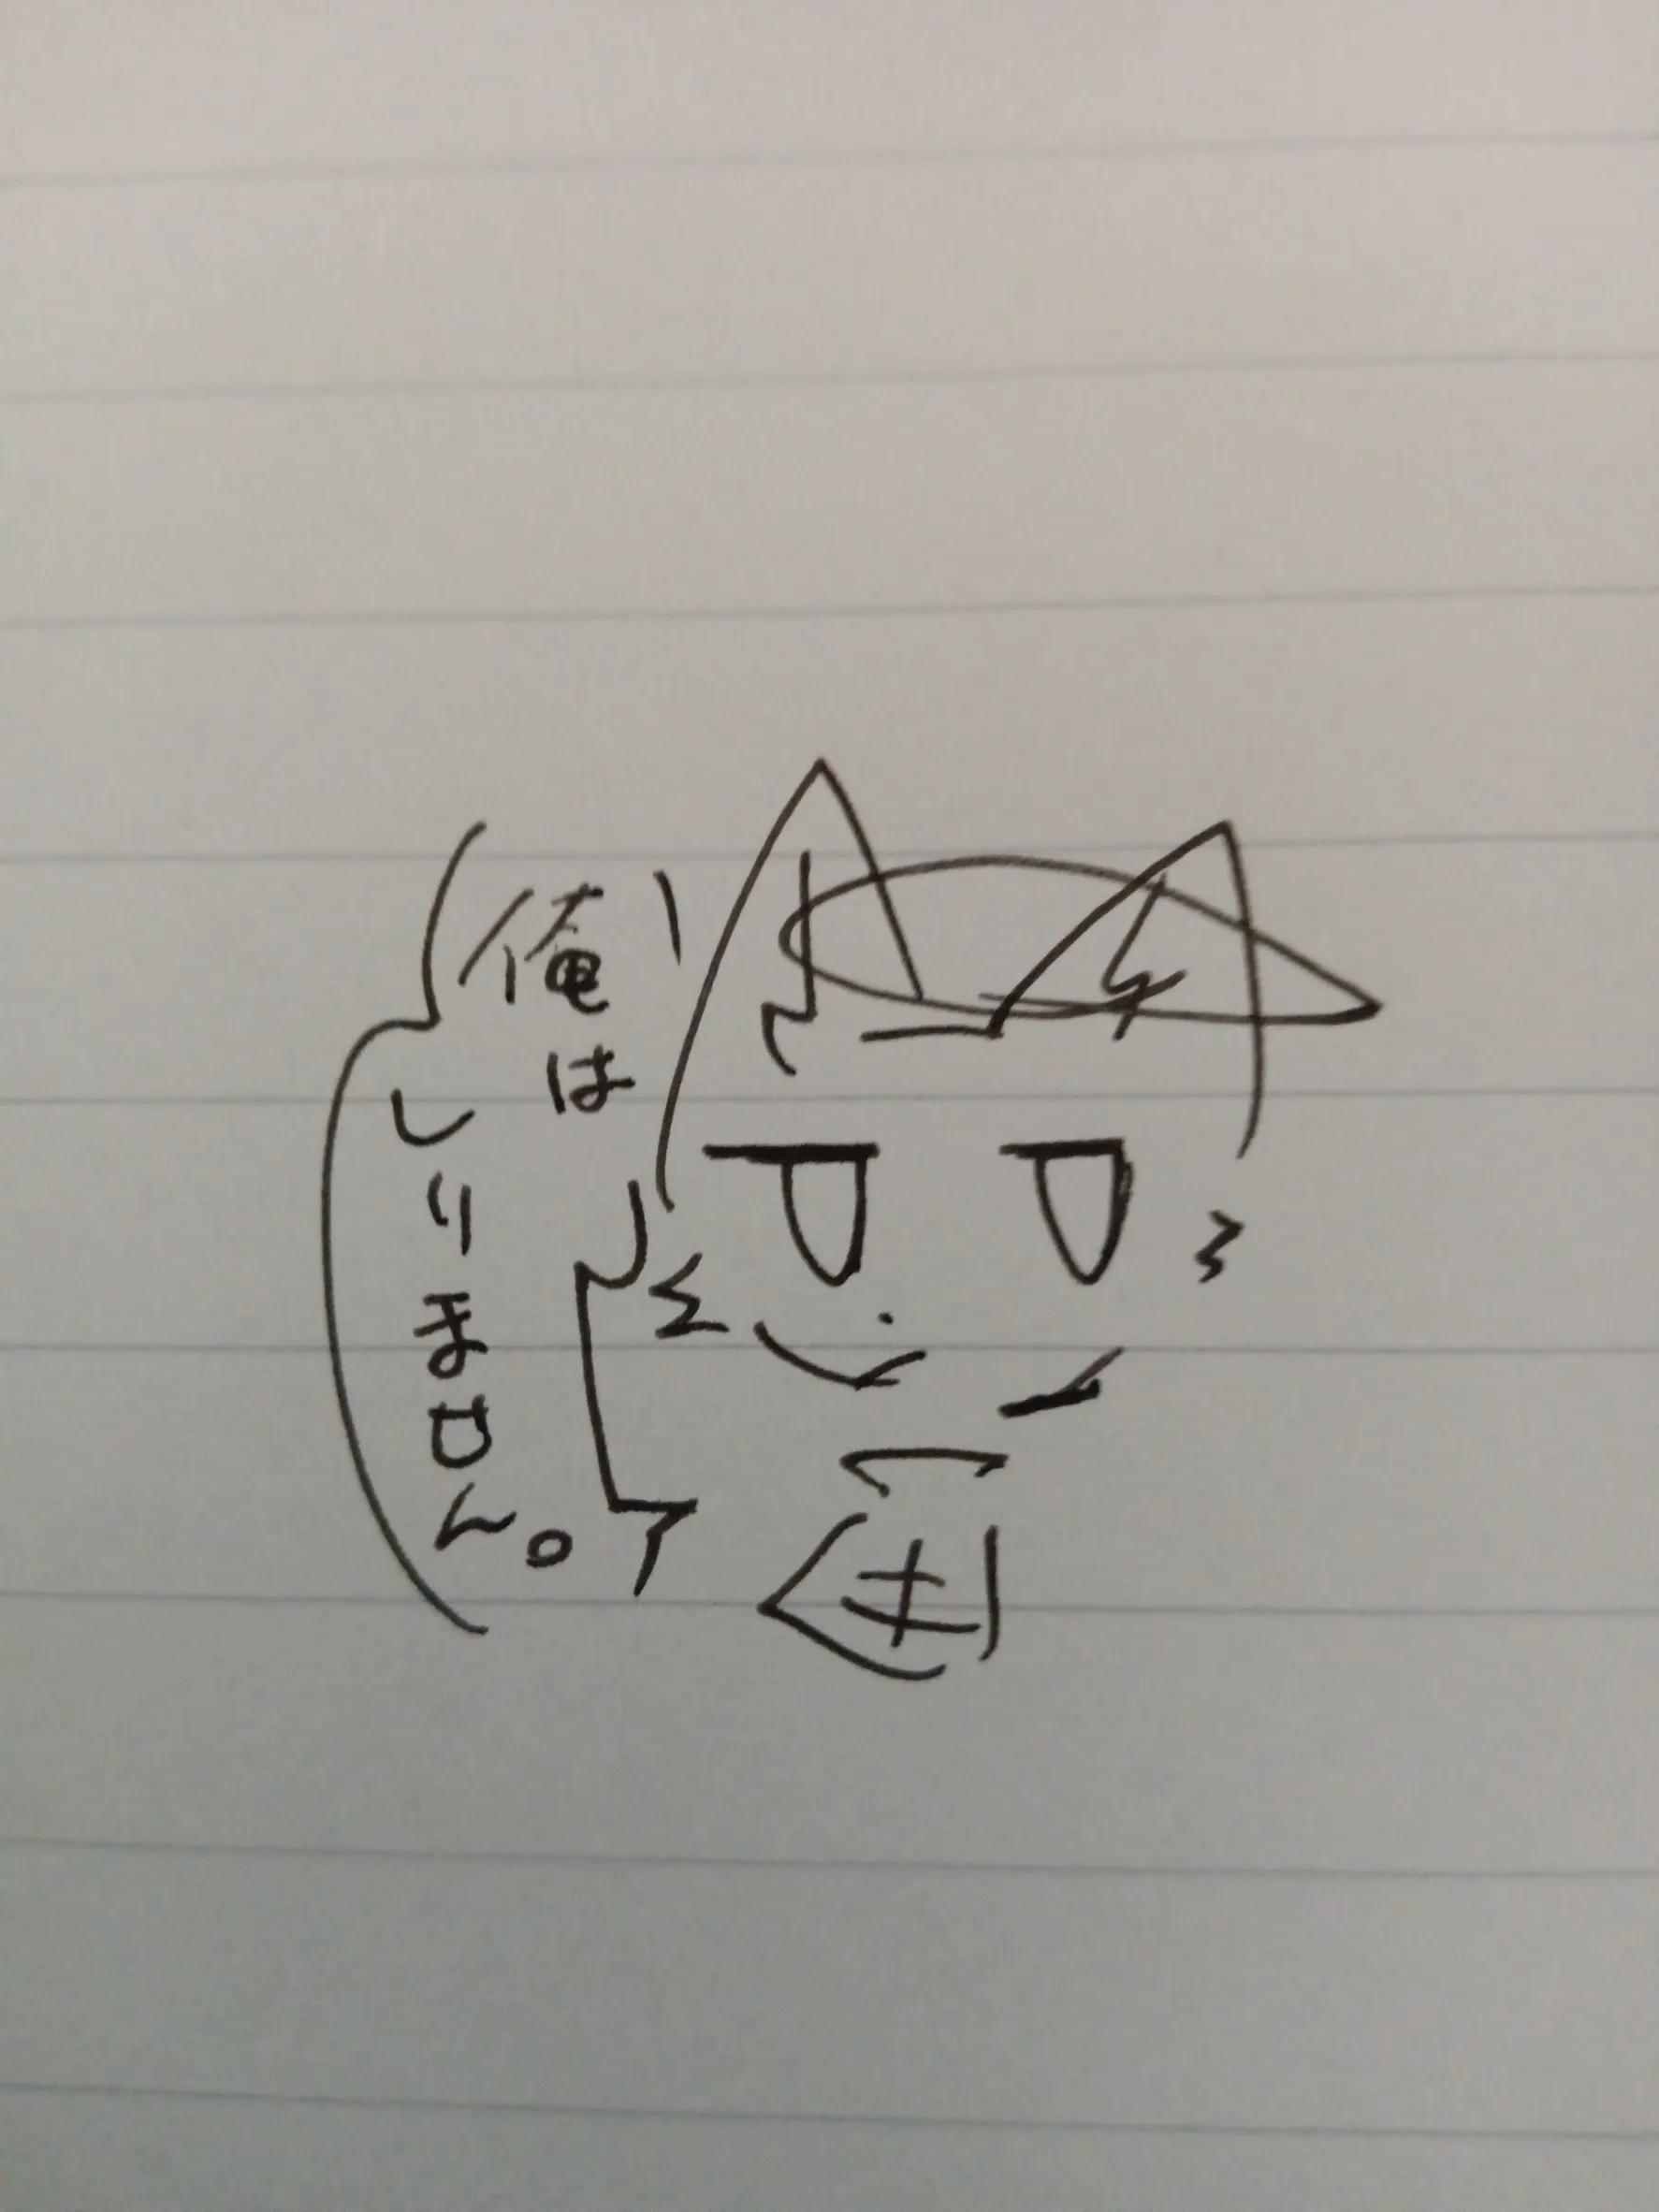 俺は
しりません。
キ